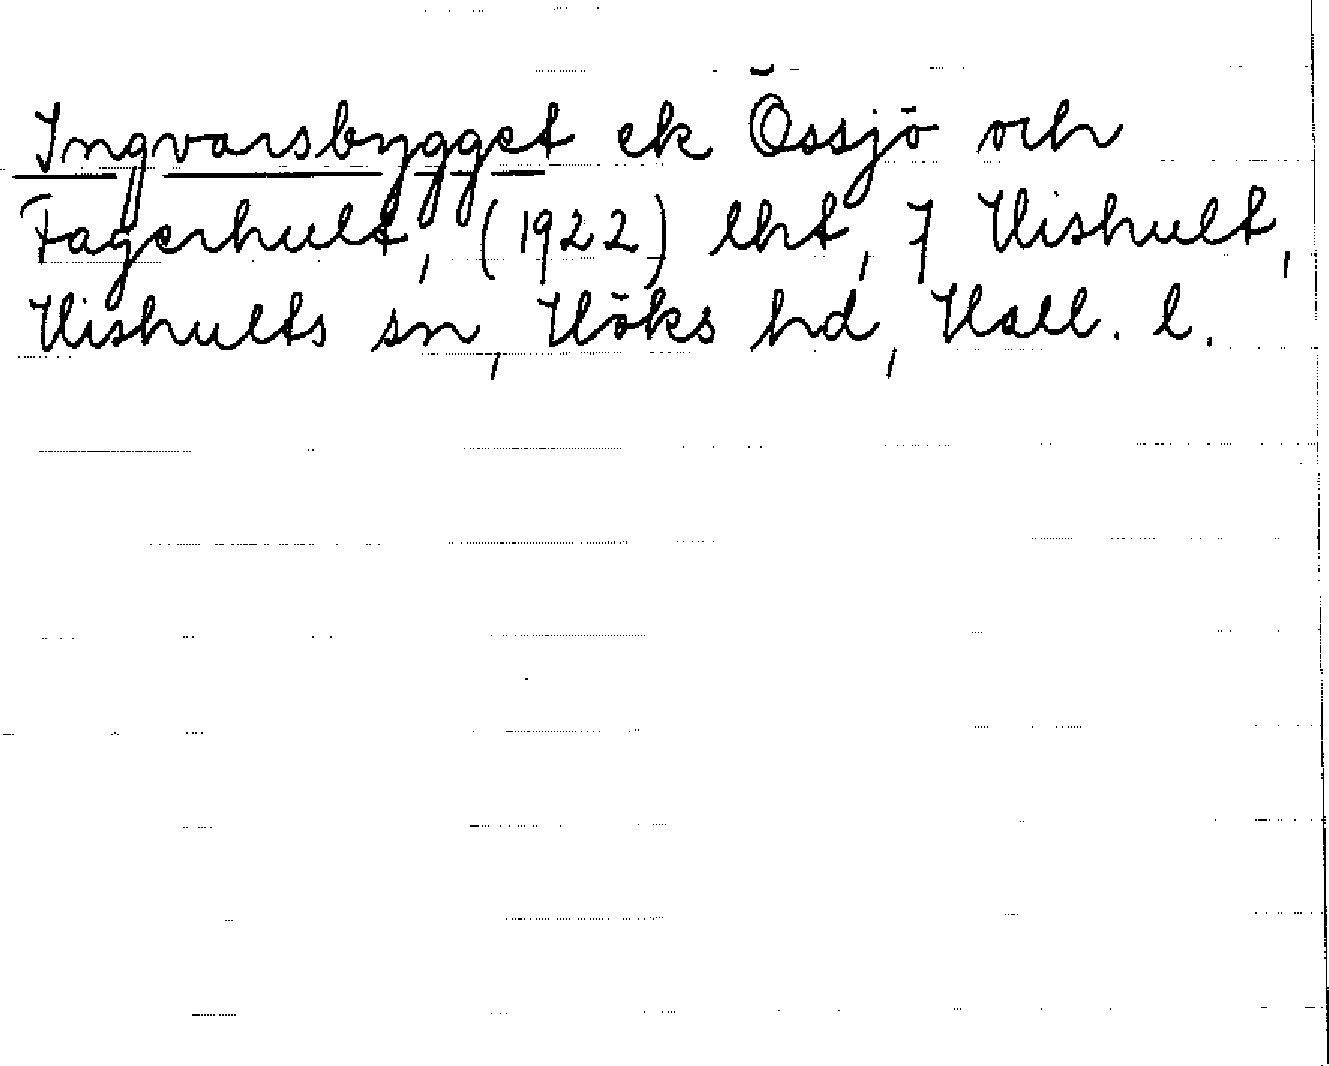 Ingvarsbygget ek Össjö och
Fagerhult, (1922) lht, 7 Hishult,
Hishults sn, Höks hd, Hall. l.